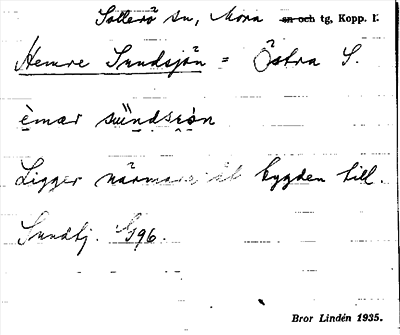 Sollerö sn, Mora sn och tg, Kopp. l.
Hemre Sundsjön = Östra S.
èmær sündsꞮön
Ligger närmare åt bygden till.
Sundbj. 96.
Bror Lindén 1935.